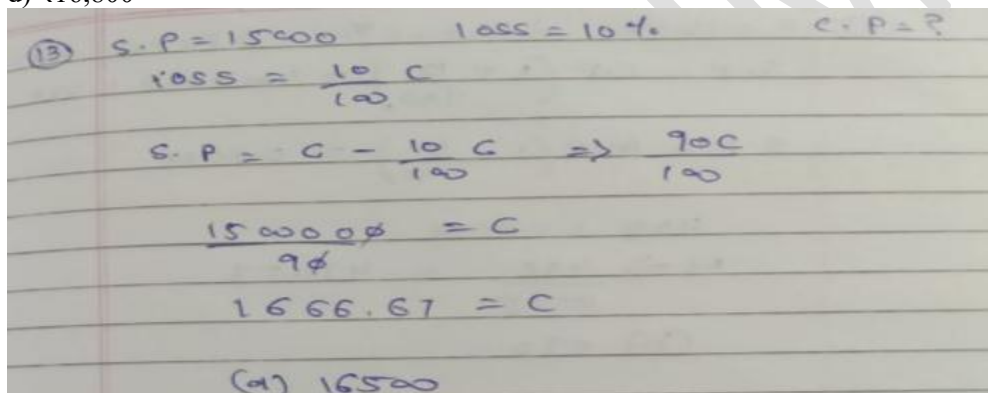 d) ₹16,800
(13) S.P = 15000 loss = 10% C.P = ?
loss = 10/100 C
S.P = C - 10/100 C => 90C/100
1500000/90 = C
1666.67 = C
(a) 16500